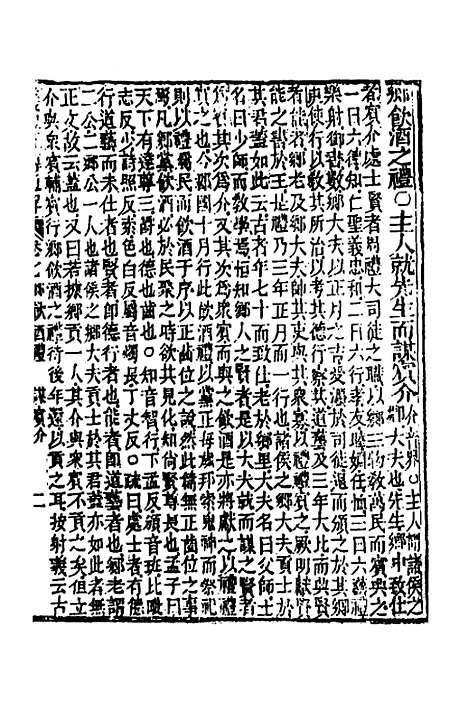 鄉飲酒之禮〇主人就先生而謀賓介介音界〇主人謂諸侯之鄉大夫也先生鄉中致仕
者賓介處士賢者周禮大司徒之職以鄉三物敎萬民而賓興之
一曰六德知仁聖義忠和二曰六行孝友睦婣任恤三曰六藝禮
樂射御書數鄉大夫以正月之吉受灋於司徒退而頒之于其鄉
吏使各以敎其所治以考其德行察其道藝及三年大比而興賢
者能者鄉老及鄉大夫帥其吏與其衆寡以禮禮賓之厥明獻賢
能之書於王是禮乃三年正月而一行也諸侯之鄉大夫貢士於
其君蓋如此云古者年七十而致仕老於鄉里大夫名曰父師士
名曰少師而敎學焉恒知鄉人之賢者是以大夫就而謀之賢者
爲賓其次爲介又其次爲衆賓而與之飲酒是亦將獻之以禮禮
賓之也今郡國十月行此飲酒禮以黨正每歲邦索鬼神而祭祀
則以禮屬民而飲酒于序以正齒位之說然此篇無正齒位之事
焉凡鄉黨飲酒必於民聚之時欲其見化知尙賢尊長也孟子曰
天下有達尊三爵也德也齒也〇知音智行下孟反頒音班比毗
志反少詩照反索色白反屬音燭長丁丈反〇疏曰處士者有德
行道藝而未仕者也賢者即德行者也能者即道藝者也鄉老謂
二公二鄉公一人也諸侯之鄉大夫貢士於其君蓋亦如此者無
正文故云蓋也又曰若據鄉貢一人其介與衆賓不貢之矣但立
介與衆賓輔賓行鄉飲酒之禮待後年還以貢之耳按射義云古
卷 鄉飲酒禮 謀賓介 二